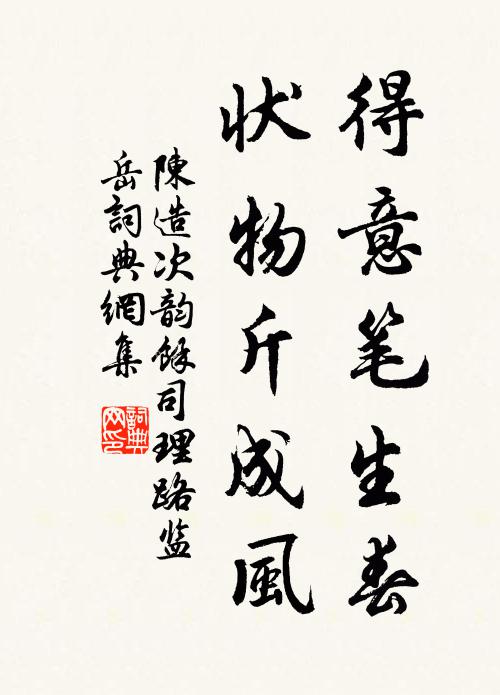 得意笔生春
状物斤成風
陳造次韵馀司理路监
岳詞典網集
詞典网印